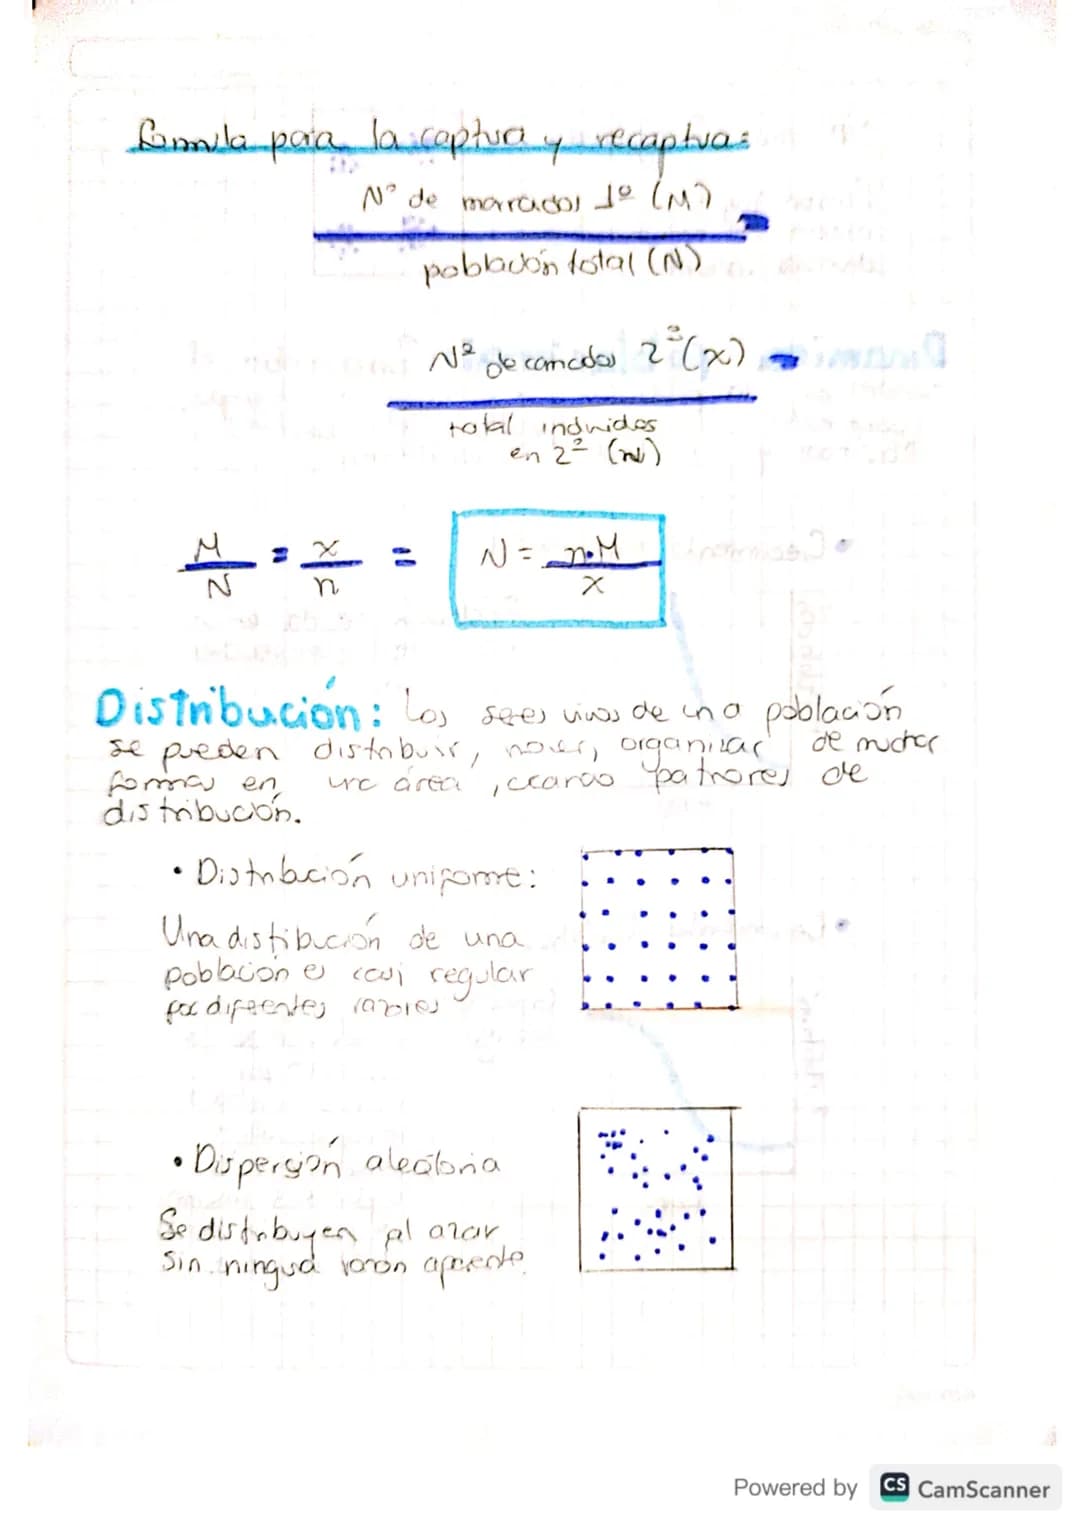 Fórmula para la captura y recaptura:
Nº de marcados 1º (M)
población total (N)
Nº de marcados 2ª (x)
total individos
en 2ª (n)
M = x = N = n·M
N n x
Distribución: Los seres vivos de una población
se pueden distribuir, mover, organizar de muchas
formas en una área, creando patrones de
distribución.
• Distribución uniforme:
Una distibución de una
población es casi regular
por diferentes razones
• Dispersión aleatoria
Se distribuyen al azar
Sin ninguna razón aparente.
Powered by CS CamScanner